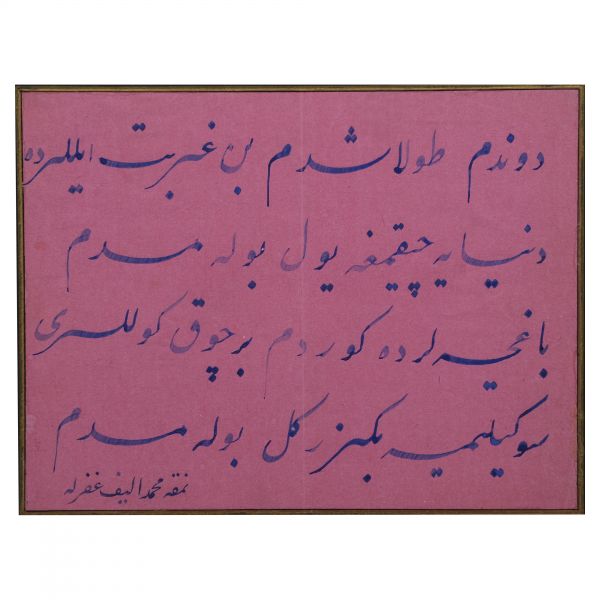 دوندم طولاشدم بن غربت ايللرده
دنيايه چيقمغه يول بوله مدم
باغچه لرده كوردم برچوق كوللرى
سوكيليمه بكزر كل بوله مدم
نمقه محمد اليف غفرله